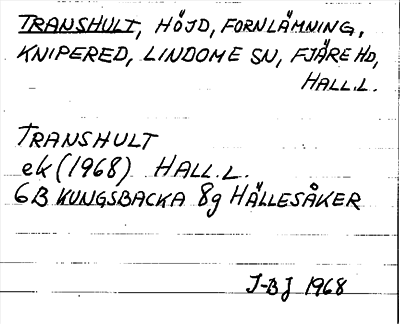 TRANSHULT, HÖJD, FORNLÄMNING,
KNIPERED, LINDOME SN, FJÄRE HD,
HALL.L.
TRANSHULT
ek (1968) HALL.L.
6B KUNGSBACKA 8g HÄLLESÅKER
J-BJ 1968